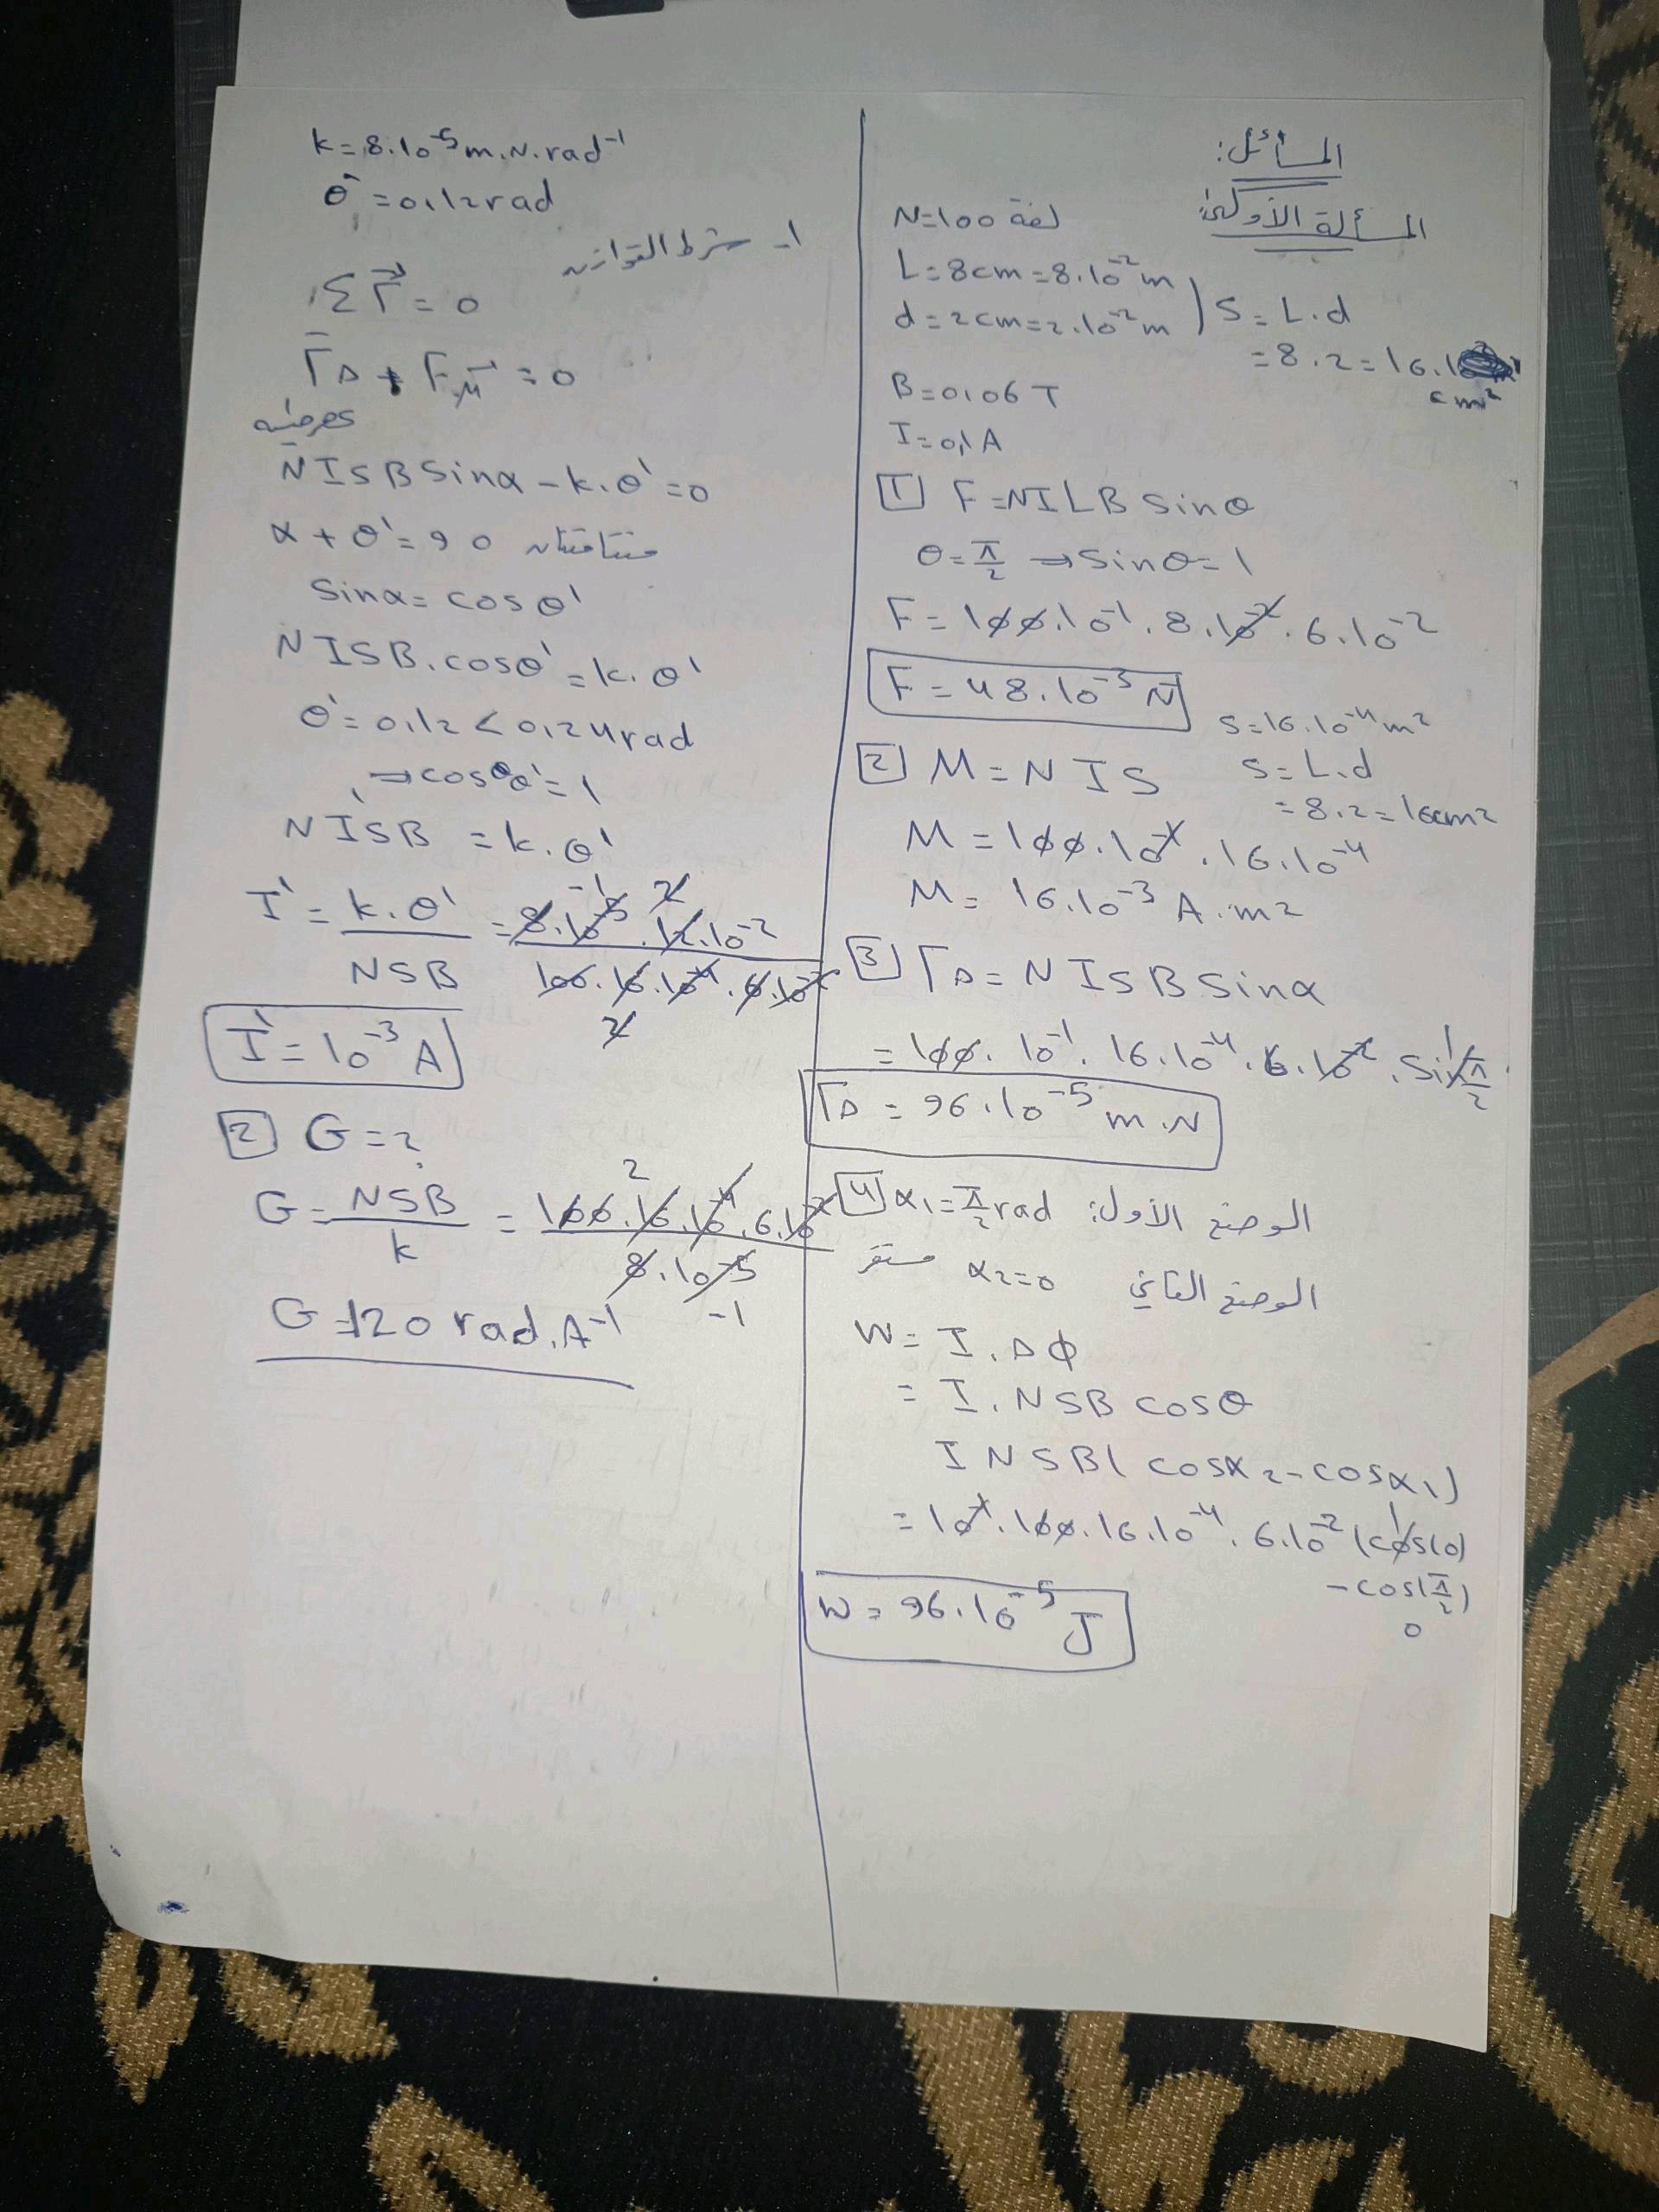 المسائل:
المسألة الأولى:
N=100 لفة
L=8cm=8.10⁻²m
d=2cm=2.10⁻²m
S=L.d
=8.2=16
cm²
B=0,06 T
I=0,1 A
[1] F=NILB sinθ
θ=π/2 → sinθ=1
F=100.10⁻¹.8.10⁻².6.10⁻²
F=48.10⁻³ N
S=16.10⁻⁴m²
[2] M=NIS
S=L.d
=8.2=16cm²
M=100.10⁻¹.16.10⁻⁴
M=16.10⁻³ A.m²
[3] ΓΔ=NISB sinα
=100.10⁻¹.16.10⁻⁴.6.10⁻².sin π/2 1
ΓΔ=96.10⁻⁵ m.N
[4] α₁=π/2 rad الوضع الأول:
الوضع الثاني α₂=0 مستقر
W=I.ΔΦ
=I.NSB cosθ
INSB(cosα₂-cosα₁)
=10⁻¹.100.16.10⁻⁴.6.10⁻²(cos(0) 1
-cos(π/2)
0
W=96.10⁻⁵ J
k=8.10⁻⁵m.N.rad⁻¹
θ'=0,12rad
1- شرط التوازن
ΣΓ⃗=0
ΓΔ+Γη'=0
NISB sinα-k.θ'=0
α+θ'=90 متتامتان
sinα=cosθ'
NISB.cosθ'=k.θ'
θ'=0,12<0,24rad
→cosθ'=1
NI'SB=k.θ'
I'=k.θ'/NSB=8.10⁻⁵.12.10⁻²/100.16.10⁻⁴.6.10⁻²
I'=10⁻³ A
[2] G=?
G=NSB/k=100.16.10⁻⁴.6.10⁻²/8.10⁻⁵
G=120 rad.A⁻¹